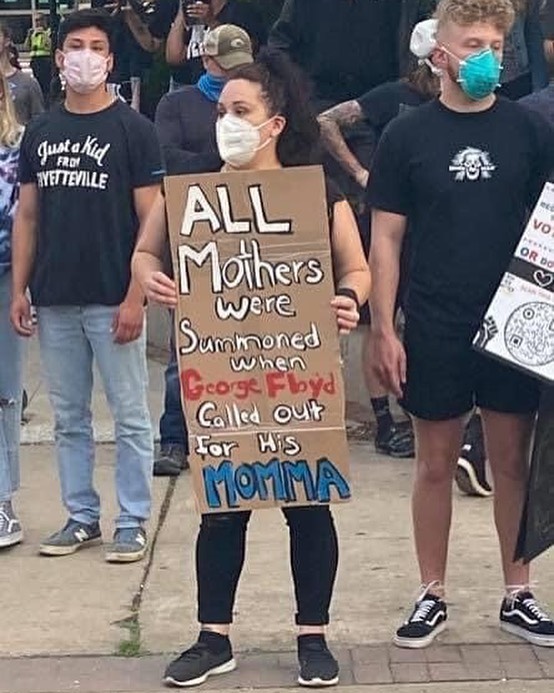 Just a Kid
FROM
FAYETTEVILLE
ALL
Mothers
were
Summoned
when
George Floyd
Called out
for His
MOMMA
VO
OR